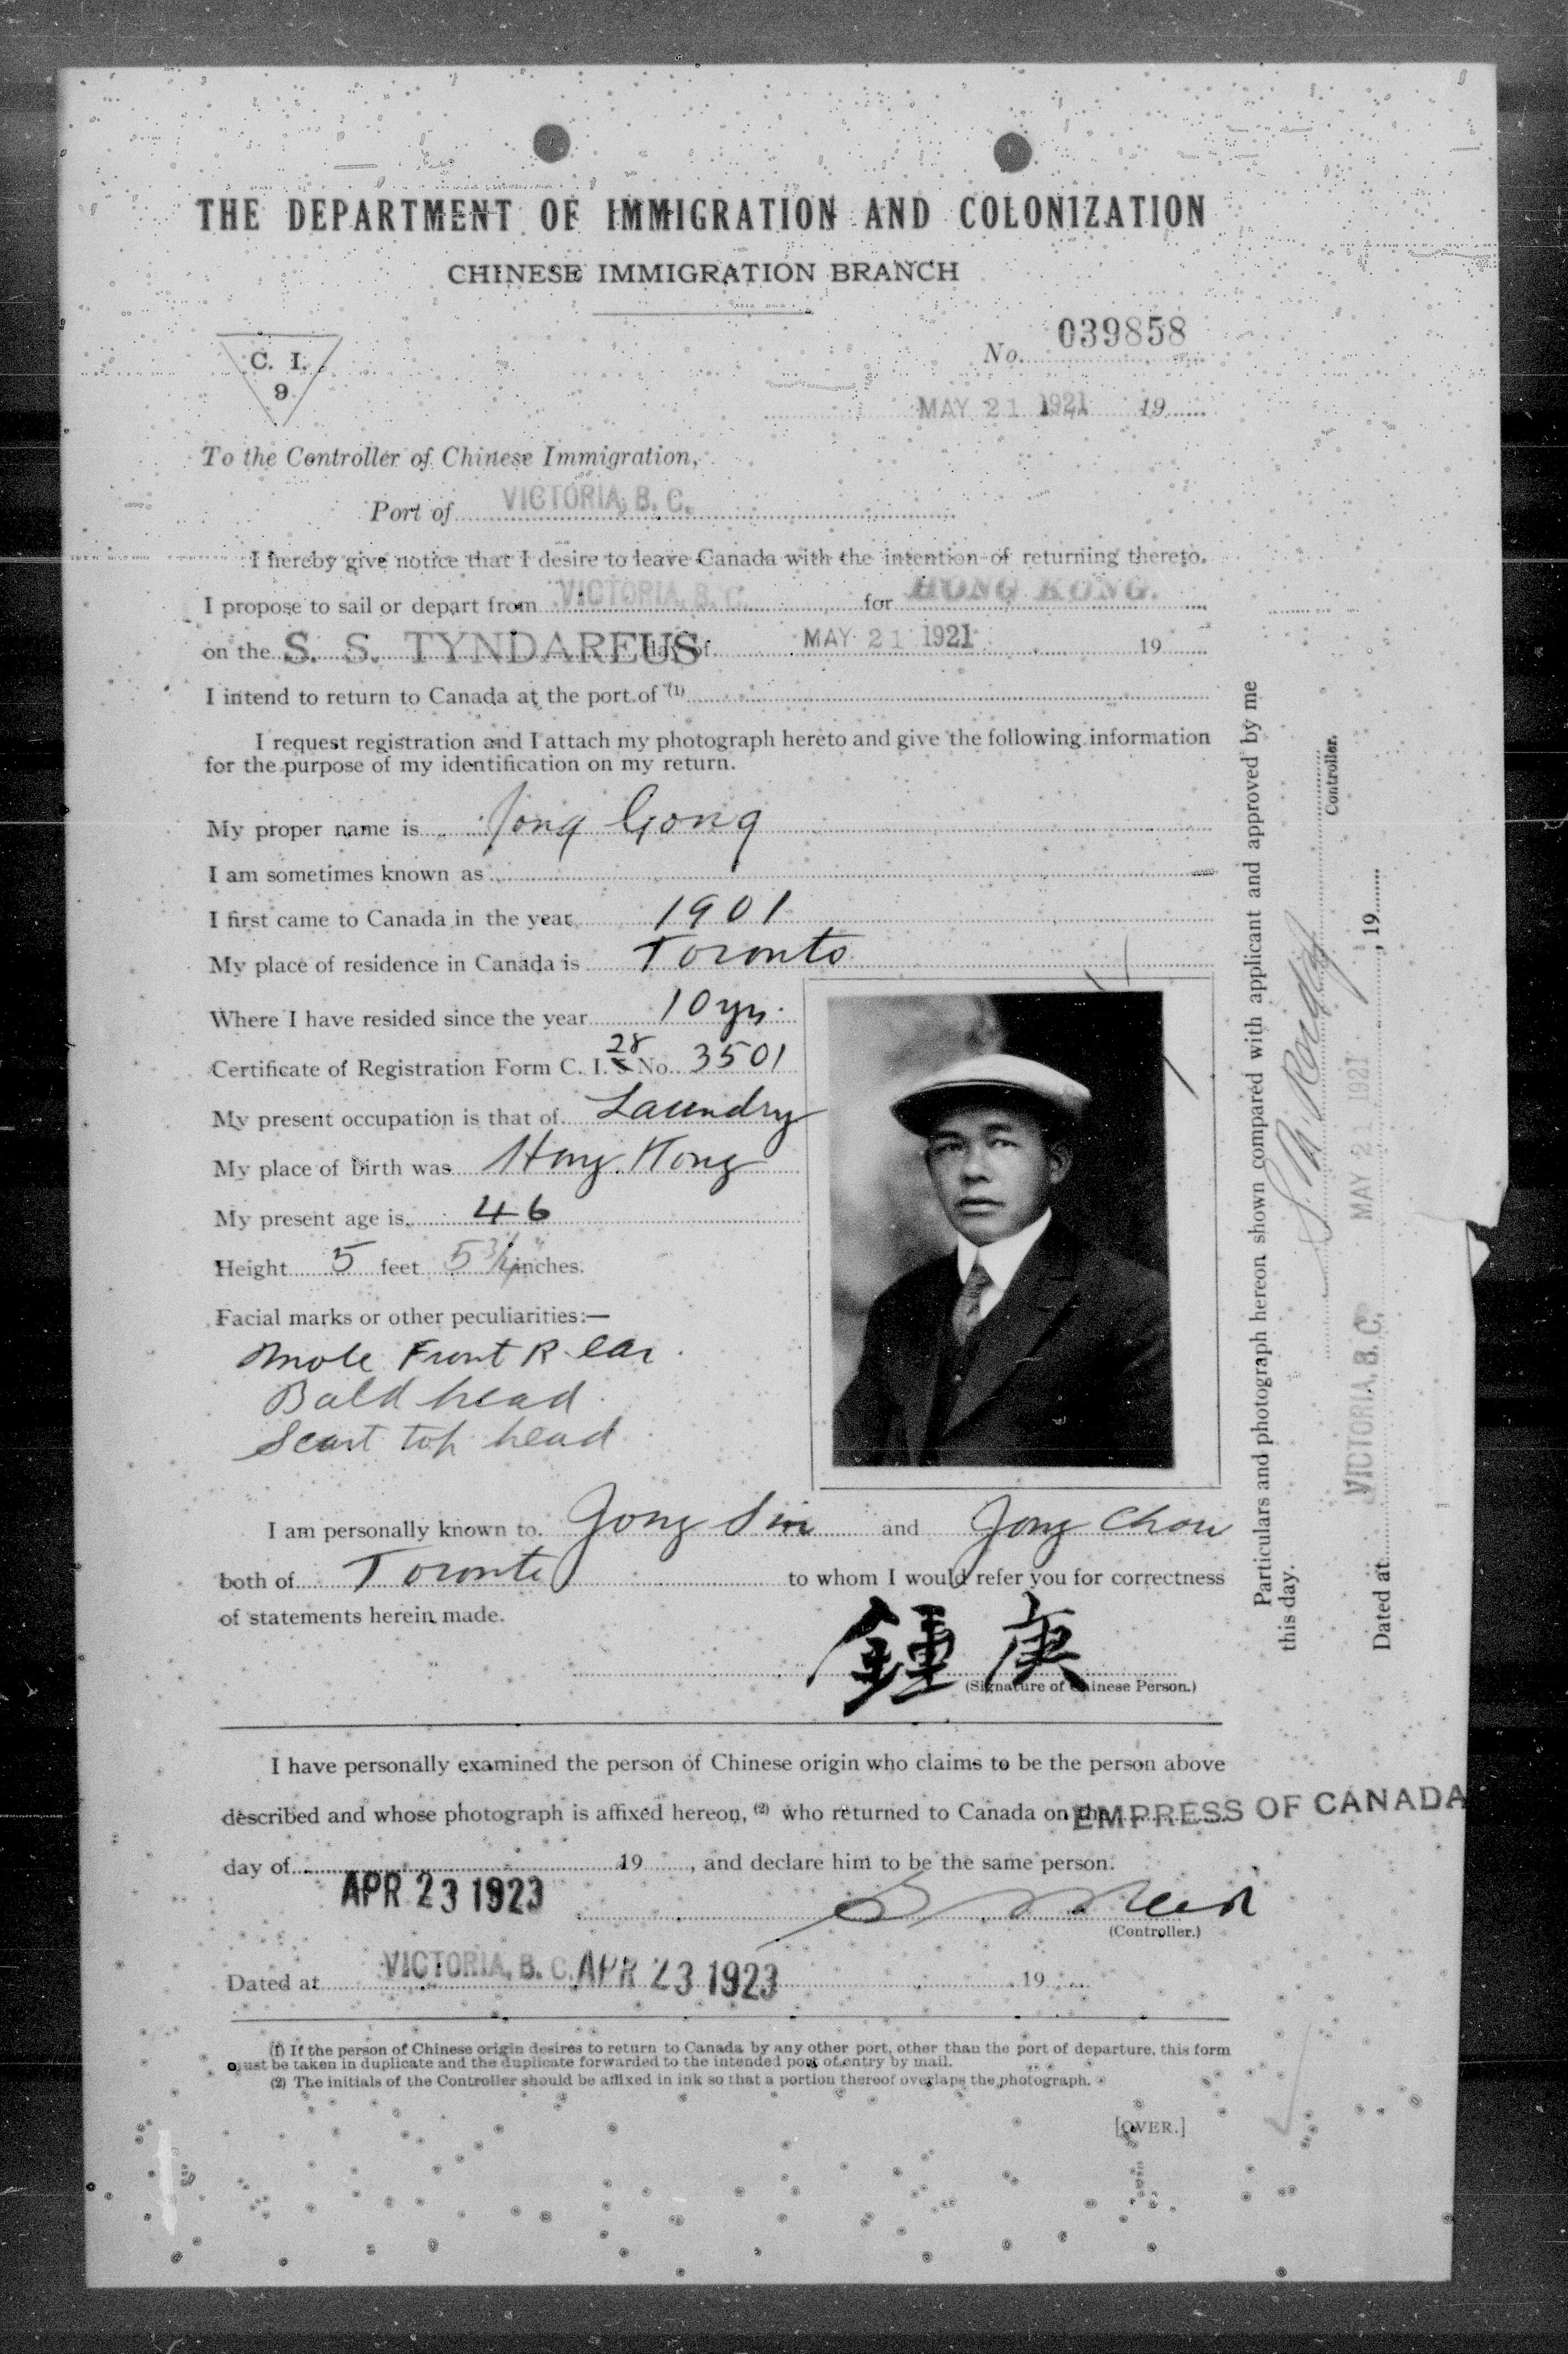 THE DEPARTMENT OF IMMIGRATION AND COLONIZATION
CHINESE IMMIGRATION BRANCH
C. I.
9
No. 039858
MAY 21 1921 19
To the Controller of Chinese Immigration,
Port of VICTORIA, B. C.
I hereby give notice that I desire to leave Canada with the intention of returning thereto.
I propose to sail or depart from VICTORIA, B. C. for HONG KONG.
on the S. S. TYNDAREUS day of MAY 21 1921 19
I intend to return to Canada at the port of (1)
I request registration and I attach my photograph hereto and give the following information
for the purpose of my identification on my return.
My proper name is Jong Gong
I am sometimes known as
I first came to Canada in the year 1901
My place of residence in Canada is Toronto
Where I have resided since the year 10 yrs.
Certificate of Registration Form C. I. 5 28 No. 3501
My present occupation is that of Laundry
My place of birth was Hong Kong
My present age is 46
Height 5 feet 5 3/4 inches.
Facial marks or other peculiarities:—
Mole Front R. ear.
Bald head.
Scar top head
I am personally known to Jong Sin and Jong Chow
both of Toronto to whom I would refer you for correctness
of statements herein made.
鍾庚
(Signature of Chinese Person.)
I have personally examined the person of Chinese origin who claims to be the person above
described and whose photograph is affixed hereon, (2) who returned to Canada on the EMPRESS OF CANADA
day of 19 , and declare him to be the same person.
APR 23 1923
(Controller.)
Dated at VICTORIA, B. C. APR 23 1923 19
(1) If the person of Chinese origin desires to return to Canada by any other port, other than the port of departure, this form
must be taken in duplicate and the duplicate forwarded to the intended port of entry by mail.
(2) The initials of the Controller should be affixed in ink so that a portion thereof overlaps the photograph.
[OVER.]
Particulars and photograph hereon shown compared with applicant and approved by me
this day.
Controller.
Dated at VICTORIA, B. C. MAY 21 1921, 19